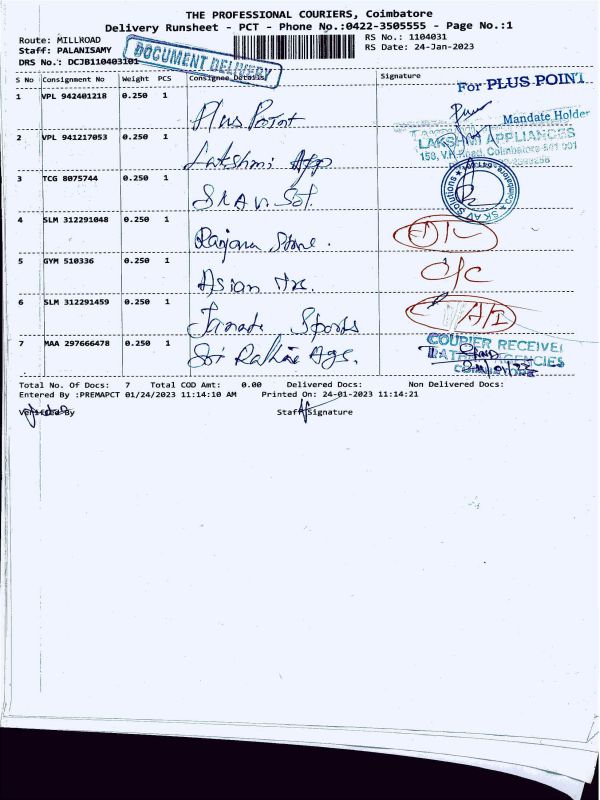 THE PROFESSIONAL COURIERS, Coimbatore
Delivery Runsheet - PCT - Phone No.:0422-3505555 - Page No.:1
Route: MILLROAD RS No.: 1104031
Staff: PALANISAMY RS Date: 24-Jan-2023
DRS No.: DCJB110403101
DOCUMENT DELIVERY
S No Consignment No Weight PCS Consignee Details Signature
For PLUS POINT
1 VPL 942401218 0.250 1 Plus Point
Mandate Holder
2 VPL 941217053 0.250 1 Lakshmi App
LAKSHMI APPLIANCES
Coimbatore-641 001
3 TCG 8075744 0.250 1 SKAV. Sol.
SKAV Solutions Coimbatore
4 SLM 312291048 0.250 1 Ranjana Store.
5 GYM 510336 0.250 1 Asian Trs. O/C
6 SLM 312291459 0.250 1 Janata Sports A/I
7 MAA 297666478 0.250 1 Sri Rathna Ags.
COURIER RECEIVE
Total No. Of Docs: 7 Total COD Amt: 0.00 Delivered Docs: Non Delivered Docs:
Entered By :PREMAPCT 01/24/2023 11:14:10 AM Printed On: 24-01-2023 11:14:21
Verified By Staff Signature